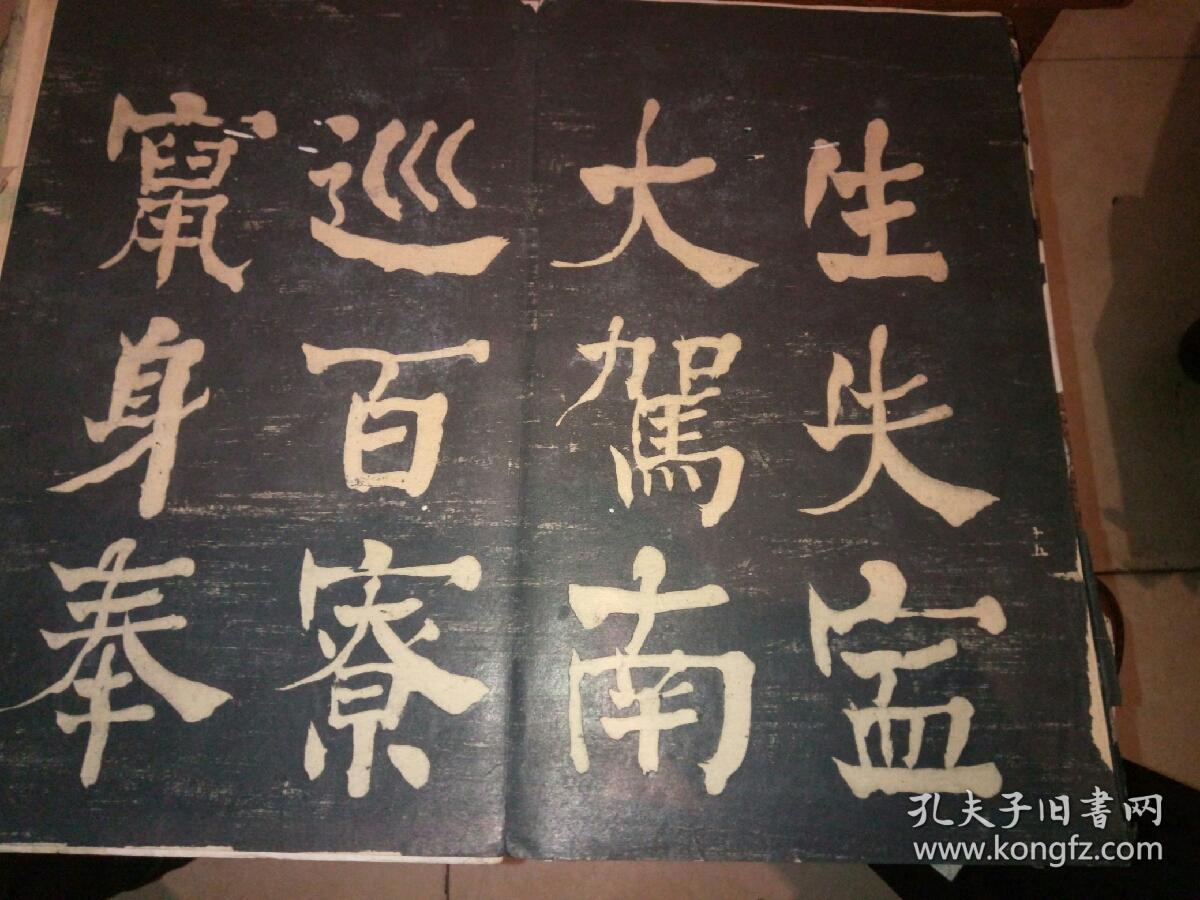 生失寍
大駕南
巡百寮
竄身奉
十五
孔夫子旧書网
www.kongfz.com